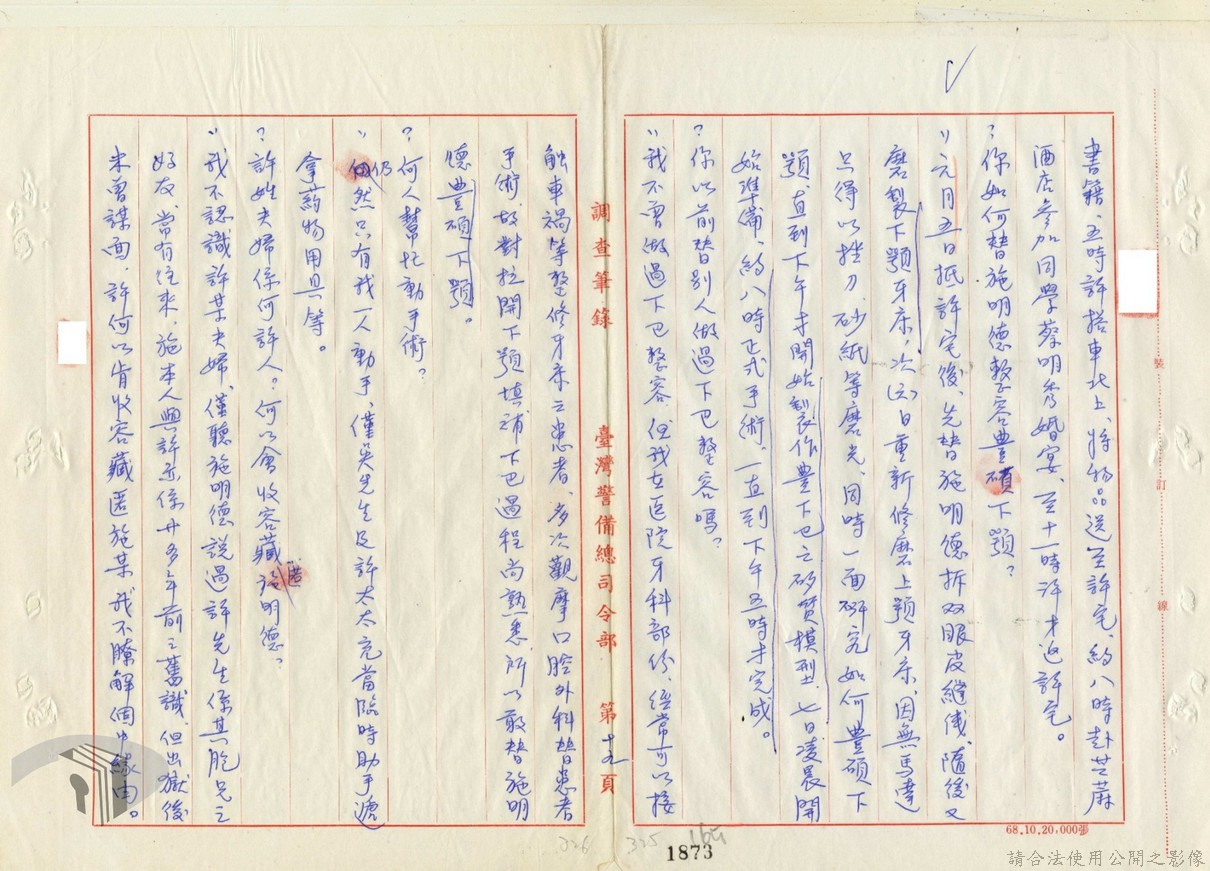 書籍、五時許搭車北上、將物品送至許宅、約八時赴芝蔴
酒店參加同學蔡明秀婚宴、至十一時許才返許宅。
?你如何替施明德整容豐碩下顎?
"元月五日抵許宅後、先替施明德拆双眼皮縫線、隨後又
磨製下顎牙床,次(六)日重新修磨上顎牙床、因無馬達
只得以挫刀、砂紙等磨光、同時一面研究如何豐碩下
顎、直到下午才開始製作豐下巴之矽質模型、七日凌晨開
始準備、約八時正式手術、一直到下午五時才完成。
?你以前替別人做過下巴整容嗎?
"我不曾做過下巴整容、但我在医院牙科部份、經常可以接
調查筆錄 臺灣警備總司令部 第十九頁
觸車禍等整修牙床之患者、多次觀摩口腔外科替患者
手術、故對拉開下顎填補下巴過程尚熟悉、所以敢替施明
德豐碩下顎。
?何人幫忙動手術?
"仍然只有我一人動手、僅吳先生及許太太充當臨時助手遞
拿葯物用具等。
?許姓夫婦係何許人?何以會收容藏匿施明德?
"我不認識許某夫婦、僅聽施明德說過許先生係其胞兄之
好友、常有往來、施本人與許亦係廿多年前之舊識、但出獄後
未曾謀面、許何以肯收容藏匿施某、我不瞭解個中緣由。
裝
訂
線
68.10.20,000張
326 325 165
1873
請合法使用公開之影像